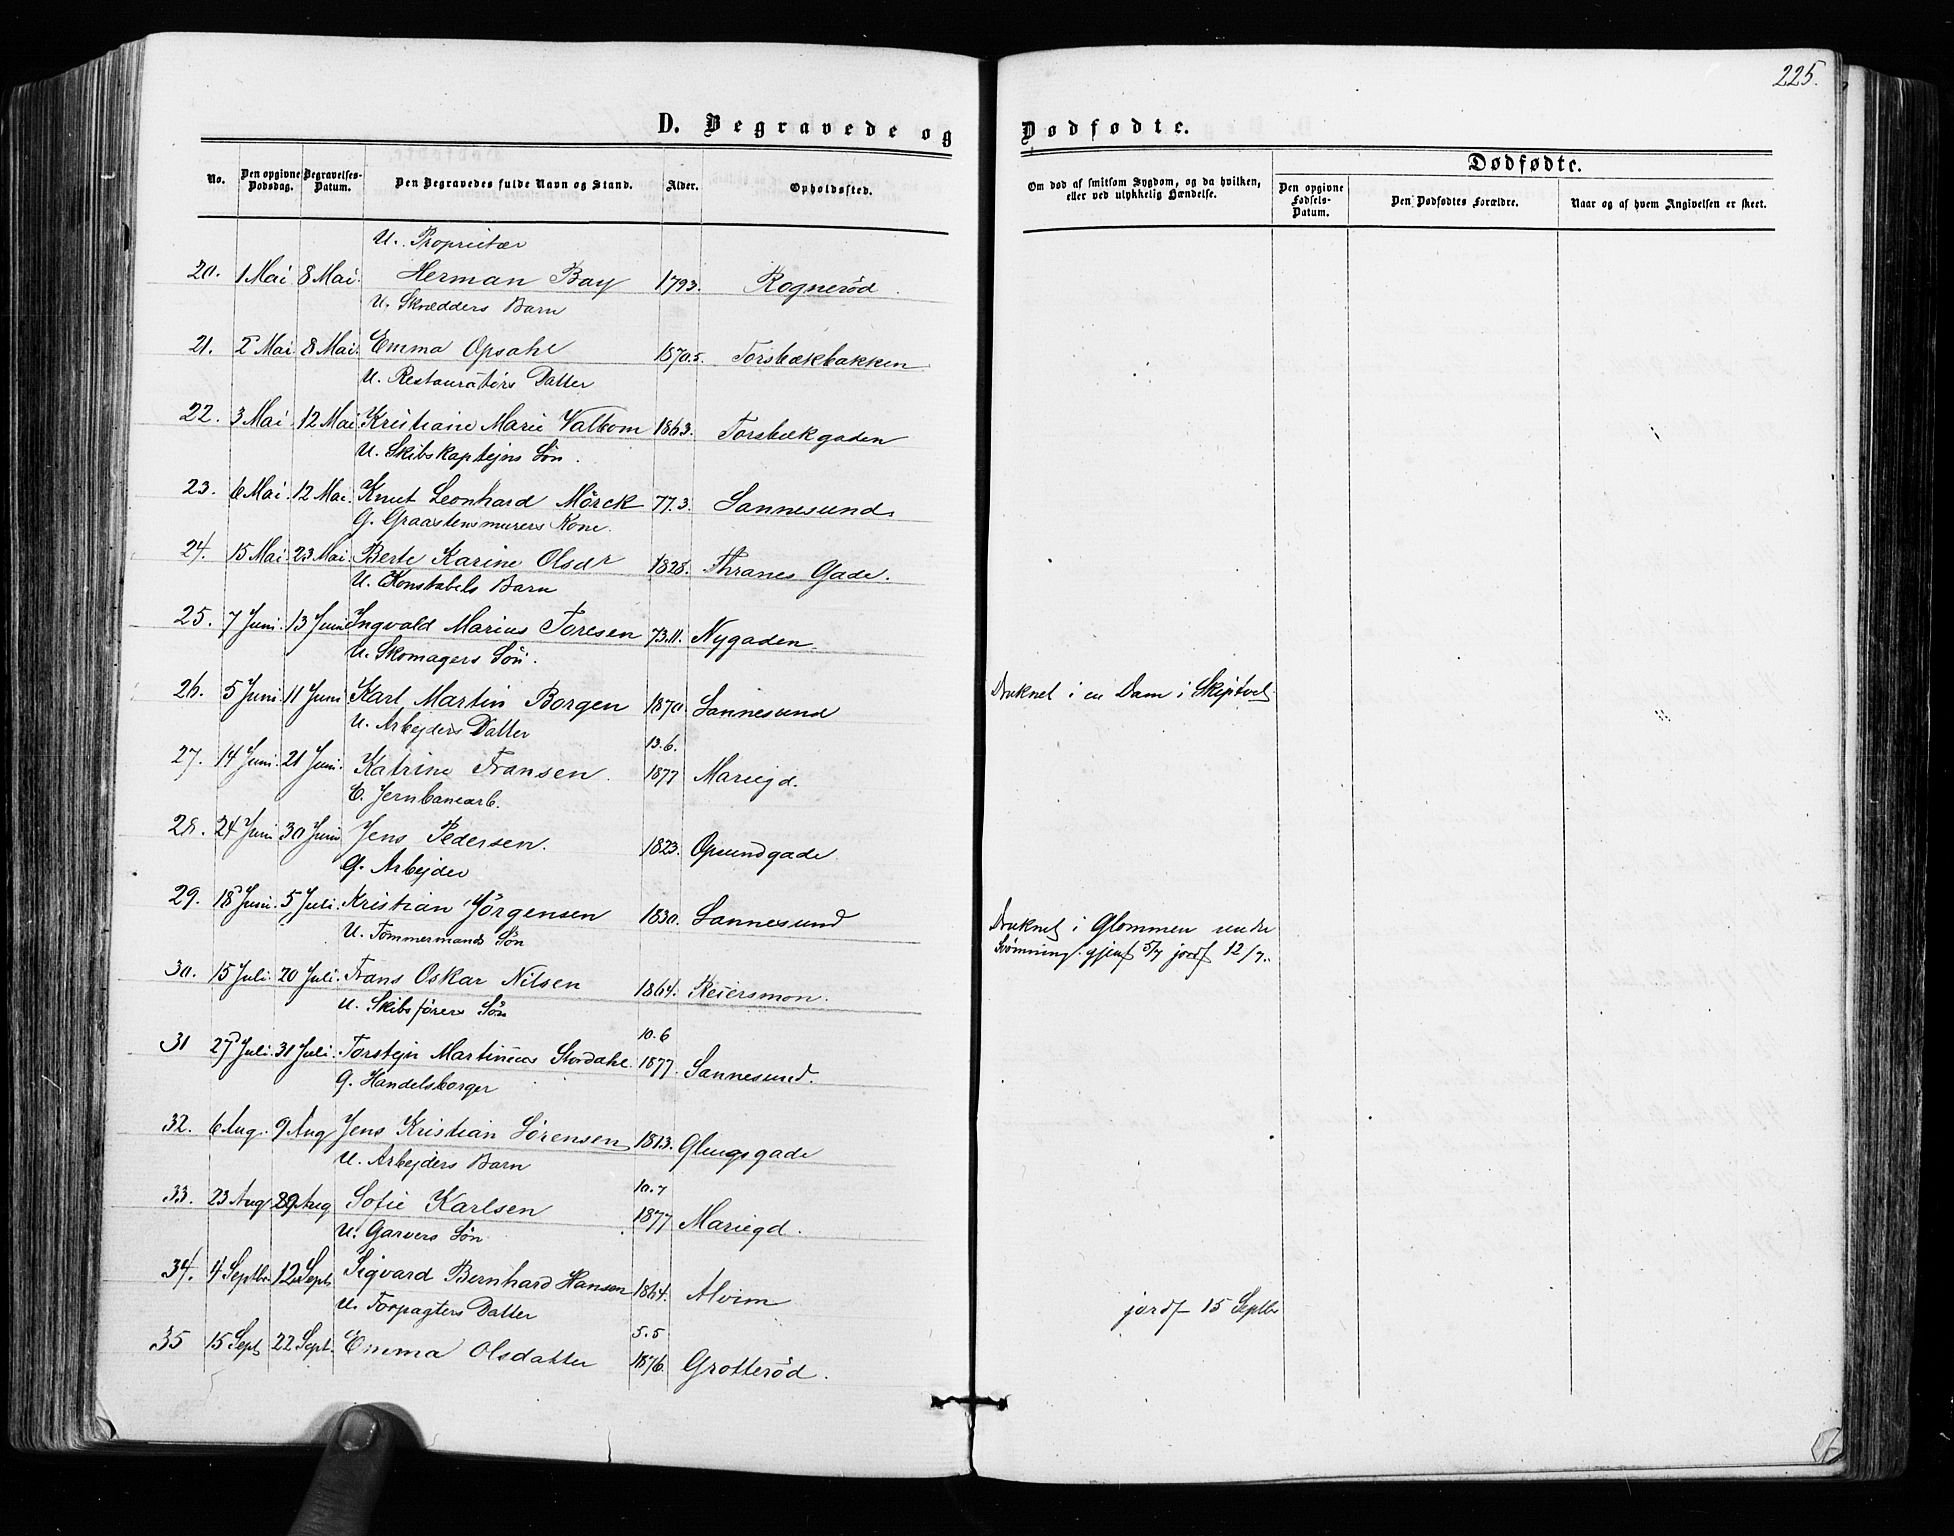 225.
D. Begravede og Dødfødte.
No.
Den opgivne Dødsdag.
Begravelses-Datum.
Den Begravedes fulde Navn og Stand.
Alder.
Opholdssted.
Om død af smitsom Sygdom, og da hvilken, eller ved ulykkelig Hændelse.
Dødfødte.
Den opgivne Fødsels-Datum.
Den Dødfødtes Forældre.
Naar og af hvem Angivelsen er skeet.
U. Proprietær
20. 1 Mai 8 Mai. Herman Bay 1793. Rognerød.
U. Skrædders Barn
21. 2 Mai 8 Mai. Emma Opsahl 1870.5. Torsbækbakken
U. Restauratørs Datter
22. 3 Mai 12 Mai Kristiane Marie Valbom 1863. Torsbækgaden
U. Skibskaptejns Søn.
23. 6 Mai. 12 Mai. Knut Leonhard Mörck 77.3. Sannesund.
G. Graastensmurers Kone.
24. 15 Mai 23 Mai. Berte Karine Olsdr 1828. Thranes Gade.
U. Konstabels Barn
25. 7 Juni. 13 Juni Ingvald Marius Toresen 73.11. Nygaden.
U. Skomagers Søn.
26. 5 Juni 11 Juni Karl Martin Borgen 1870 Sannesund Druknet i en Dam i Skiptvet.
U. Arbejders Datter
27. 14 Juni. 21 Juni. Katrine Fransen. 13.6. 1877 Mariegd.
E. Jernbanearb.
28. 24 Juni 30 Juni Jens Pedersen. 1823. Opsundgade.
G. Arbejder
29. 18 Juni. 5 Juli. Kristian Jörgensen 1830. Sannesund Druknet i Glommen under
Svømning. gjenf 5/7 jordf 12/7.
U. Tømmermands Søn
30. 15 Juli. 20 Juli. Frans Oskar Nilsen 1864. Reiersmon.
U. Skibsførers Søn
31 27 Juli. 31 Juli. Torstejn Martinius Stordahl. 10.6 1877. Sannesund.
G. Handelsborger
32. 6 Aug. 9 Aug Jens Kristian Sørensen 1813. Glengsgade
U. Arbejders Barn
33. 23 Aug 29 Aug Sofie Karlsen 10.7 1877 Mariegd.
U. Garvers Søn
34. 4 Septbr. 12 Septr Sigvard Bernhard Hansen 1864. Alvim jordf 15 Septbr
U. Forpagters Datter
35 15 Sept 22 Sept. Emma Olsdatter 5.5 1876. Grotterød.